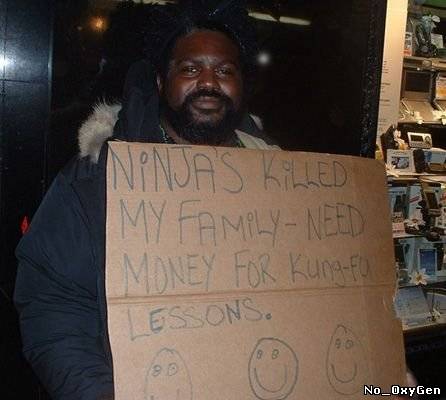 NINJA'S KILLED
MY FAMILY - NEED
MONEY FOR KUNG-FU
LESSONS.
No_OxyGen